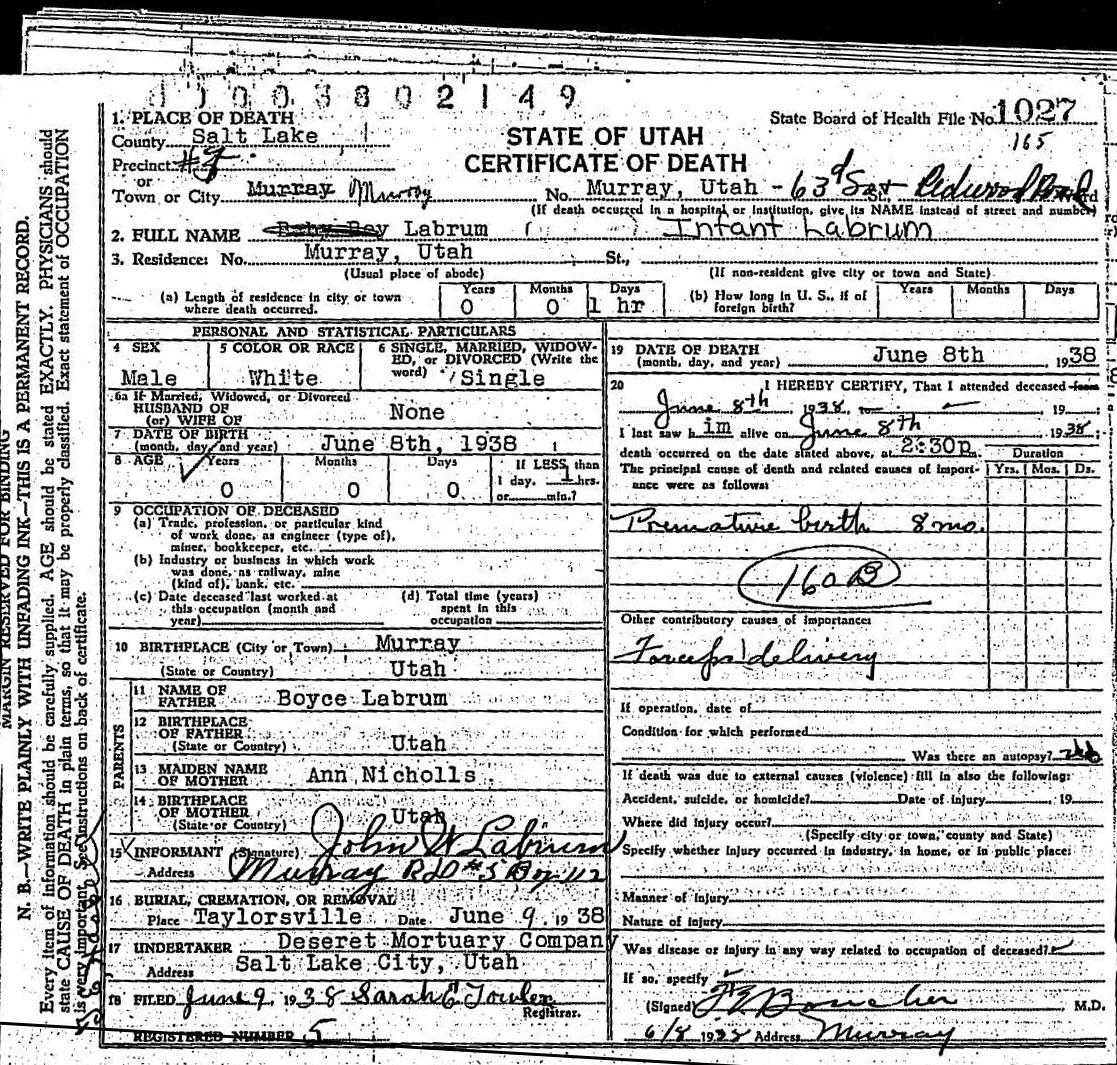 11003802149
1. PLACE OF DEATH
County Salt Lake
Precinct #7
or
Town or City Murray Murray
STATE OF UTAH
CERTIFICATE OF DEATH
State Board of Health File No. 1027
165
No. Murray, Utah - 63d So St., Redwood Road
(If death occurred in a hospital or institution, give its NAME instead of street and number)
2. FULL NAME Baby Boy Labrum Infant Labrum
3. Residence: No. Murray, Utah St.,
(Usual place of abode) (If non-resident give city or town and State)
(a) Length of residence in city or town where death occurred. Years 0 Months 0 Days 1 hr
(b) How long in U. S., if of foreign birth? Years Months Days
PERSONAL AND STATISTICAL PARTICULARS
4 SEX Male
5 COLOR OR RACE White
6 SINGLE, MARRIED, WIDOWED, or DIVORCED (Write the word) Single
6a If Married, Widowed, or Divorced
HUSBAND OF
(or) WIFE OF None
7 DATE OF BIRTH
(month, day, and year) June 8th, 1938
8 AGE Years 0 Months 0 Days 0
If LESS than
1 day, 1 hrs.
or min.?
9 OCCUPATION OF DECEASED
(a) Trade, profession, or particular kind
of work done, as engineer (type of),
miner, bookkeeper, etc.
(b) Industry or business in which work
was done, as railway, mine
(kind of), bank, etc.
(c) Date deceased last worked at
this occupation (month and
year)
(d) Total time (years)
spent in this
occupation
10 BIRTHPLACE (City or Town) Murray
(State or Country) Utah
PARENTS
11 NAME OF FATHER Boyce Labrum
12 BIRTHPLACE OF FATHER
(State or Country) Utah
13 MAIDEN NAME OF MOTHER Ann Nicholls
14 BIRTHPLACE OF MOTHER
(State or Country) Utah
15 INFORMANT (Signature) John W Labrum
Address Murray Rd #5 Box 112
16 BURIAL, CREMATION, OR REMOVAL
Place Taylorsville Date June 9, 1938
17 UNDERTAKER Deseret Mortuary Company
Address Salt Lake City, Utah
18 FILED June 9, 1938 Sarah E Towler
Registrar.
REGISTERED NUMBER 5
19 DATE OF DEATH
(month, day, and year) June 8th 1938
20 I HEREBY CERTIFY, That I attended deceased from
June 8th, 1938, 19
I last saw him alive on June 8th 1938
death occurred on the date stated above, at 2:30p m.
The principal cause of death and related causes of importance were as follows:
Duration
Yrs. Mos. Ds.
Premature birth 8 mo.
160B
Other contributory causes of importance:
Forceps delivery
If operation, date of
Condition for which performed
Was there an autopsy? no
If death was due to external causes (violence) fill in also the following:
Accident, suicide, or homicide? Date of injury 19
Where did injury occur?
(Specify city or town, county and State)
Specify whether injury occurred in industry, in home, or in public place:
Manner of injury
Nature of injury
Was disease or injury in any way related to occupation of deceased?
If so, specify
(Signed) M.D.
6/8 1938 Address Murray
MARGIN RESERVED FOR BINDING
N. B.—WRITE PLAINLY WITH UNFADING INK—THIS IS A PERMANENT RECORD.
Every item of information should be carefully supplied. AGE should be stated EXACTLY. PHYSICIANS should
state CAUSE OF DEATH in plain terms, so that it may be properly classified. Exact statement of OCCUPATION
is very important. See instructions on back of certificate.